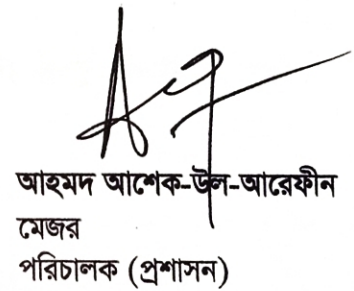 আহমদ আশেক-উল-আরেফীন
মেজর
পরিচালক (প্রশাসন)